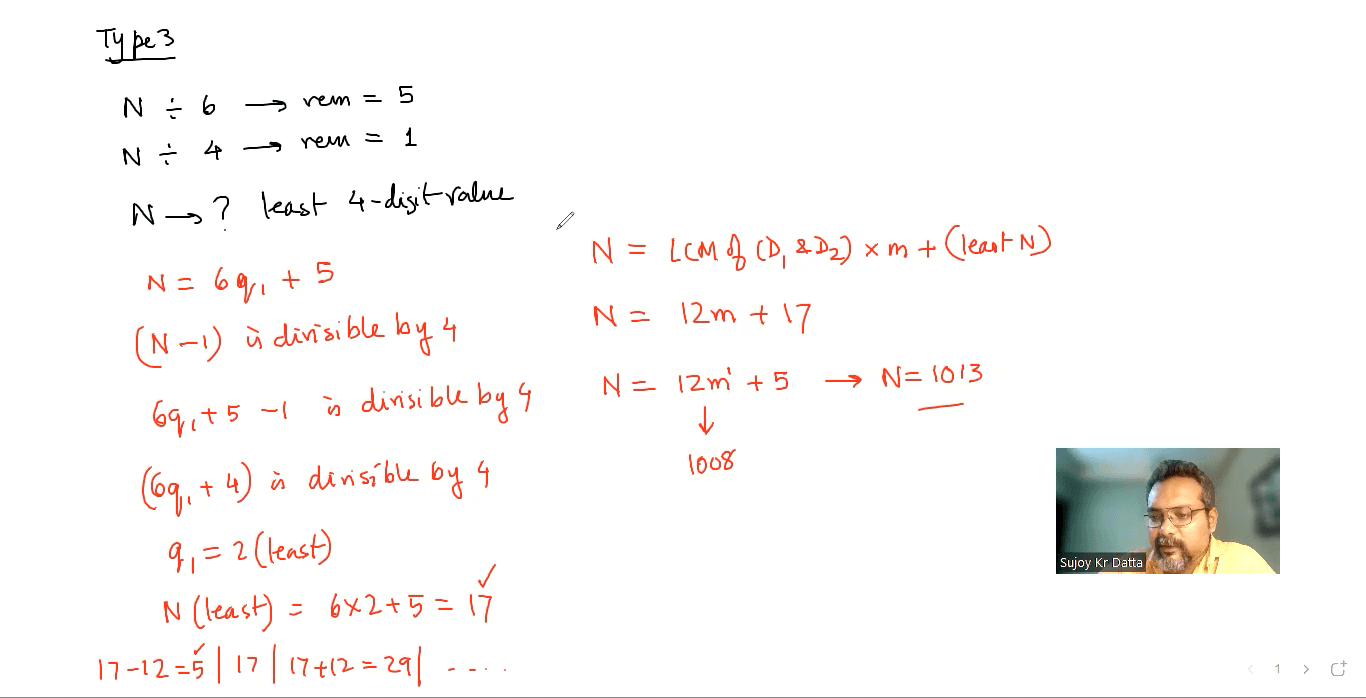 Type 3
N ÷ 6 → rem = 5
N ÷ 4 → rem = 1
N → ? least 4-digit value
N = 6q₁ + 5
(N-1) is divisible by 4
6q₁ + 5 -1 is divisible by 4
(6q₁ + 4) is divisible by 4
q₁ = 2 (least)
N (least) = 6×2+5 = 17 ✓
17-12=5 ✓ | 17 | 17+12 = 29 | -....
N = LCM of (D₁ & D₂) × m + (least N)
N = 12m + 17
N = 12m' + 5 → N = 1013
↓
1008
Sujoy Kr Datta
1